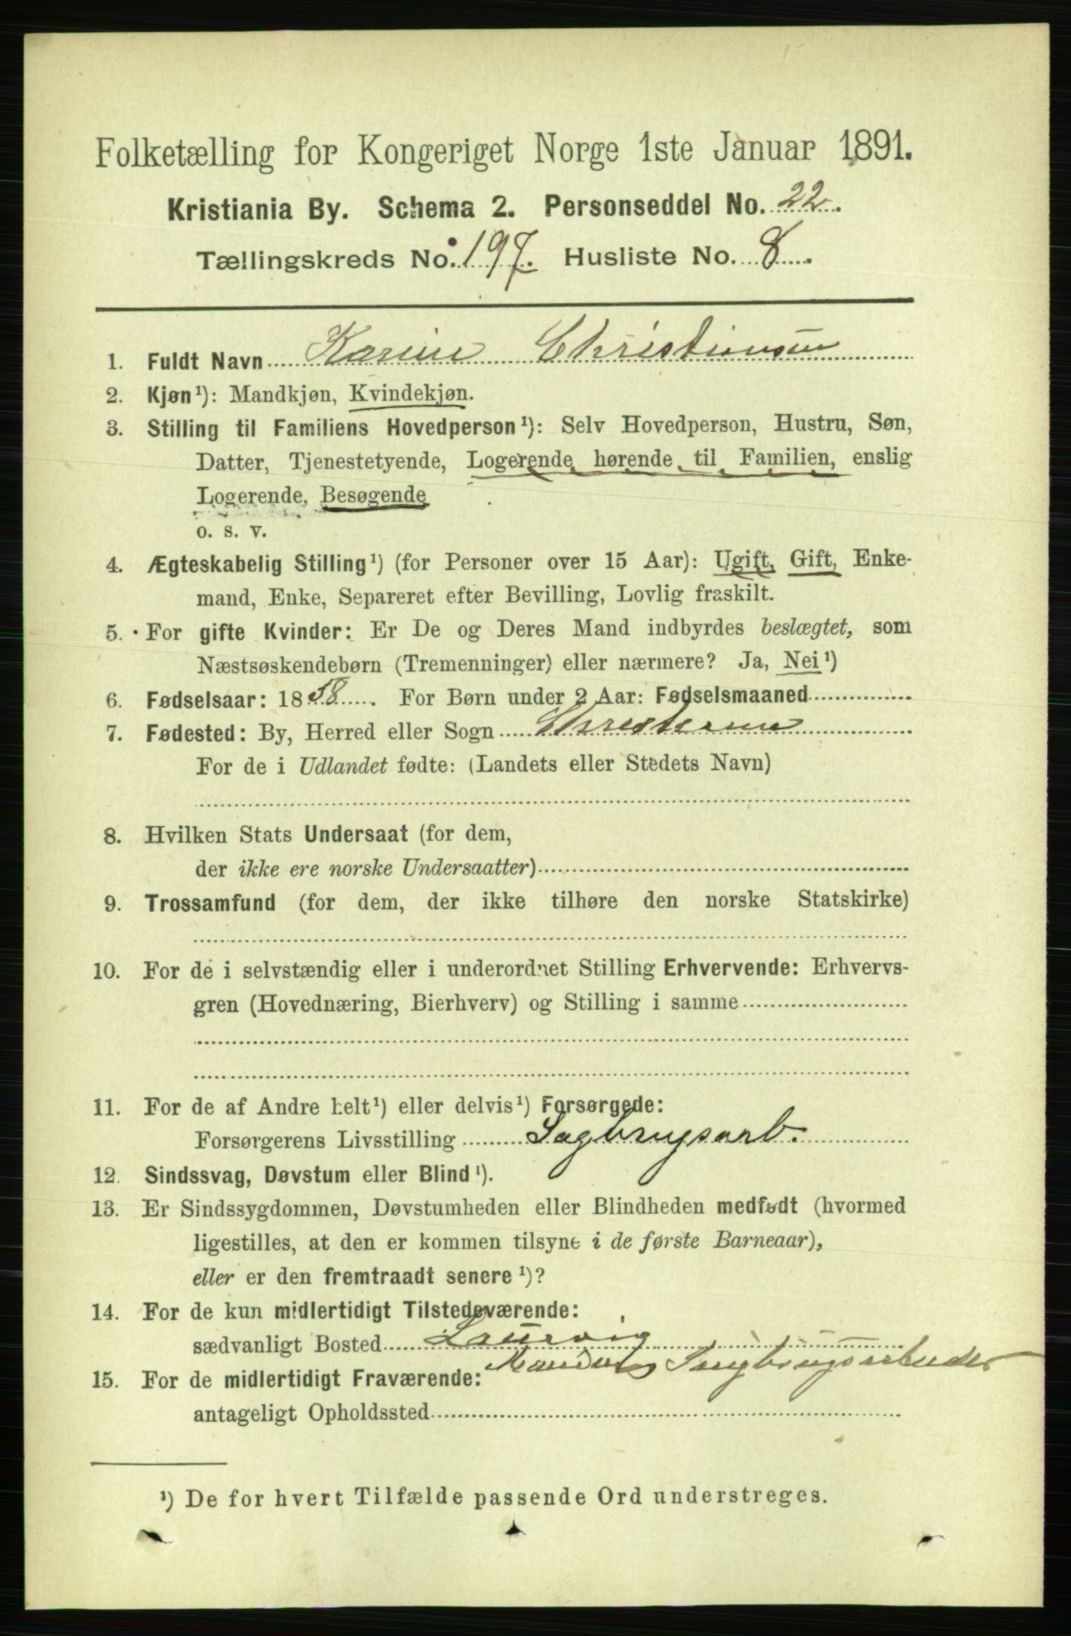 Folketælling for Kongeriget Norge 1ste Januar 1891.
Kristiania By. Schema 2. Personseddel No. 22.
Tællingskreds No. 197. Husliste No. 8.
1. Fuldt Navn Karine Christiansen
2. Kjøn¹): Mandkjøn, Kvindekjøn.
3. Stilling til Familiens Hovedperson¹): Selv Hovedperson, Hustru, Søn,
Datter, Tjenestetyende, Logerende hørende til Familien, enslig
Logerende, Besøgende
o. s. v.
4. Ægteskabelig Stilling¹) (for Personer over 15 Aar): Ugift, Gift, Enke-
mand, Enke, Separeret efter Bevilling, Lovlig fraskilt.
5. For gifte Kvinder: Er De og Deres Mand indbyrdes beslægtet, som
Næstsøskendebørn (Tremenninger) eller nærmere? Ja, Nei¹)
6. Fødselsaar: 1858. For Børn under 2 Aar: Fødselsmaaned
7. Fødested: By, Herred eller Sogn
For de i Udlandet fødte: (Landets eller Stedets Navn)
8. Hvilken Stats Undersaat (for dem,
der ikke ere norske Undersaatter)
9. Trossamfund (for dem, der ikke tilhøre den norske Statskirke)
10. For de i selvstændig eller i underordnet Stilling Erhvervende: Erhvervs-
gren (Hovednæring, Bierhverv) og Stilling i samme
11. For de af Andre helt¹) eller delvis¹) Forsørgede:
Forsørgerens Livsstilling Sagbrugsarb.
12. Sindssvag, Døvstum eller Blind¹).
13. Er Sindssygdommen, Døvstumheden eller Blindheden medfødt (hvormed
ligestilles, at den er kommen tilsyne i de første Barneaar),
eller er den fremtraadt senere¹)?
14. For de kun midlertidigt Tilstedeværende:
sædvanligt Bosted Laurvig
Manden Sagbrugsarbeider
15. For de midlertidigt Fraværende:
antageligt Opholdssted
¹) De for hvert Tilfælde passende Ord understreges.